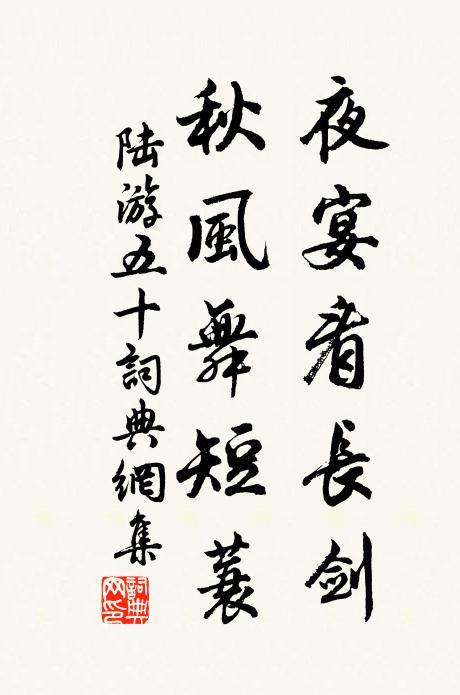 夜宴看長劍
秋風舞短蓑
陆游五十詞典網集
詞典网印